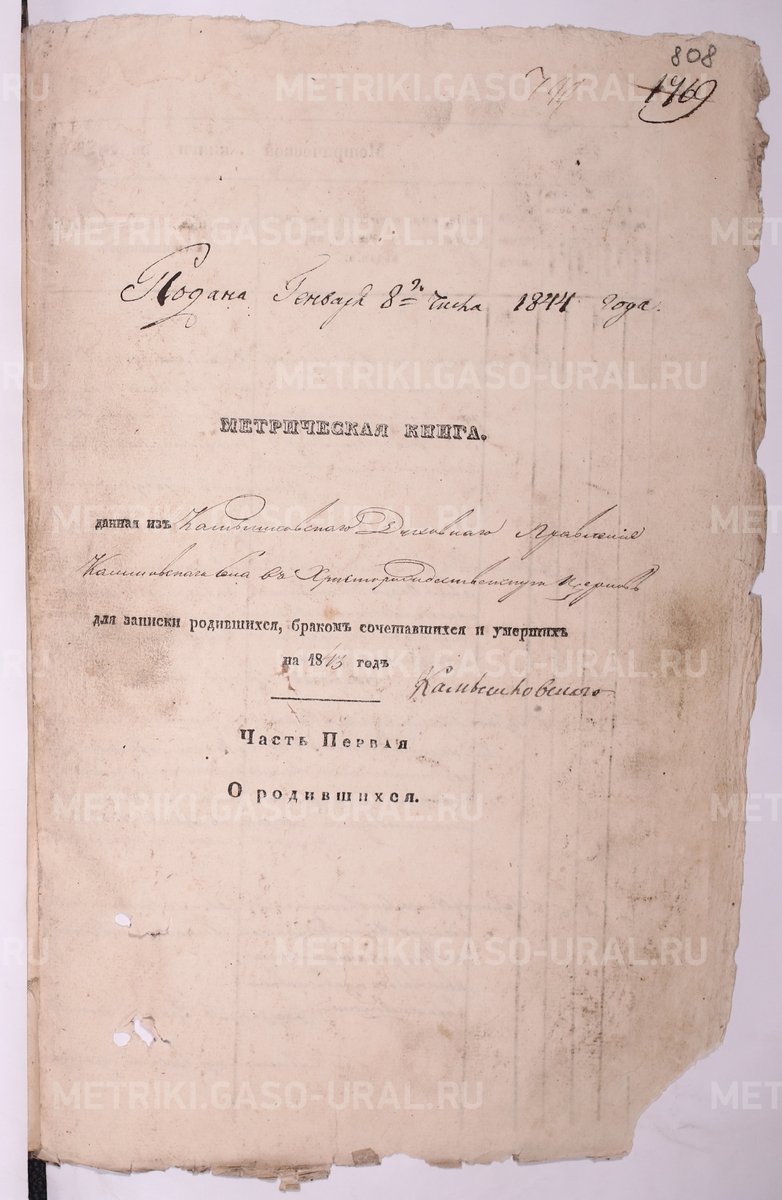 808
1769
Подана Генваря 8го числа 1844 года.
МЕТРИЧЕСКАЯ КНИГА.
данная изъ Камышловскаго Духовнаго Правленія
села въ Христорождественскую Церковь
для записки родившихся, бракомъ сочетавшихся и умершихъ
на 1843 годъ
Камышловскаго
Часть Первая
О родившихся.
METRIKI.GASO-URAL.RU